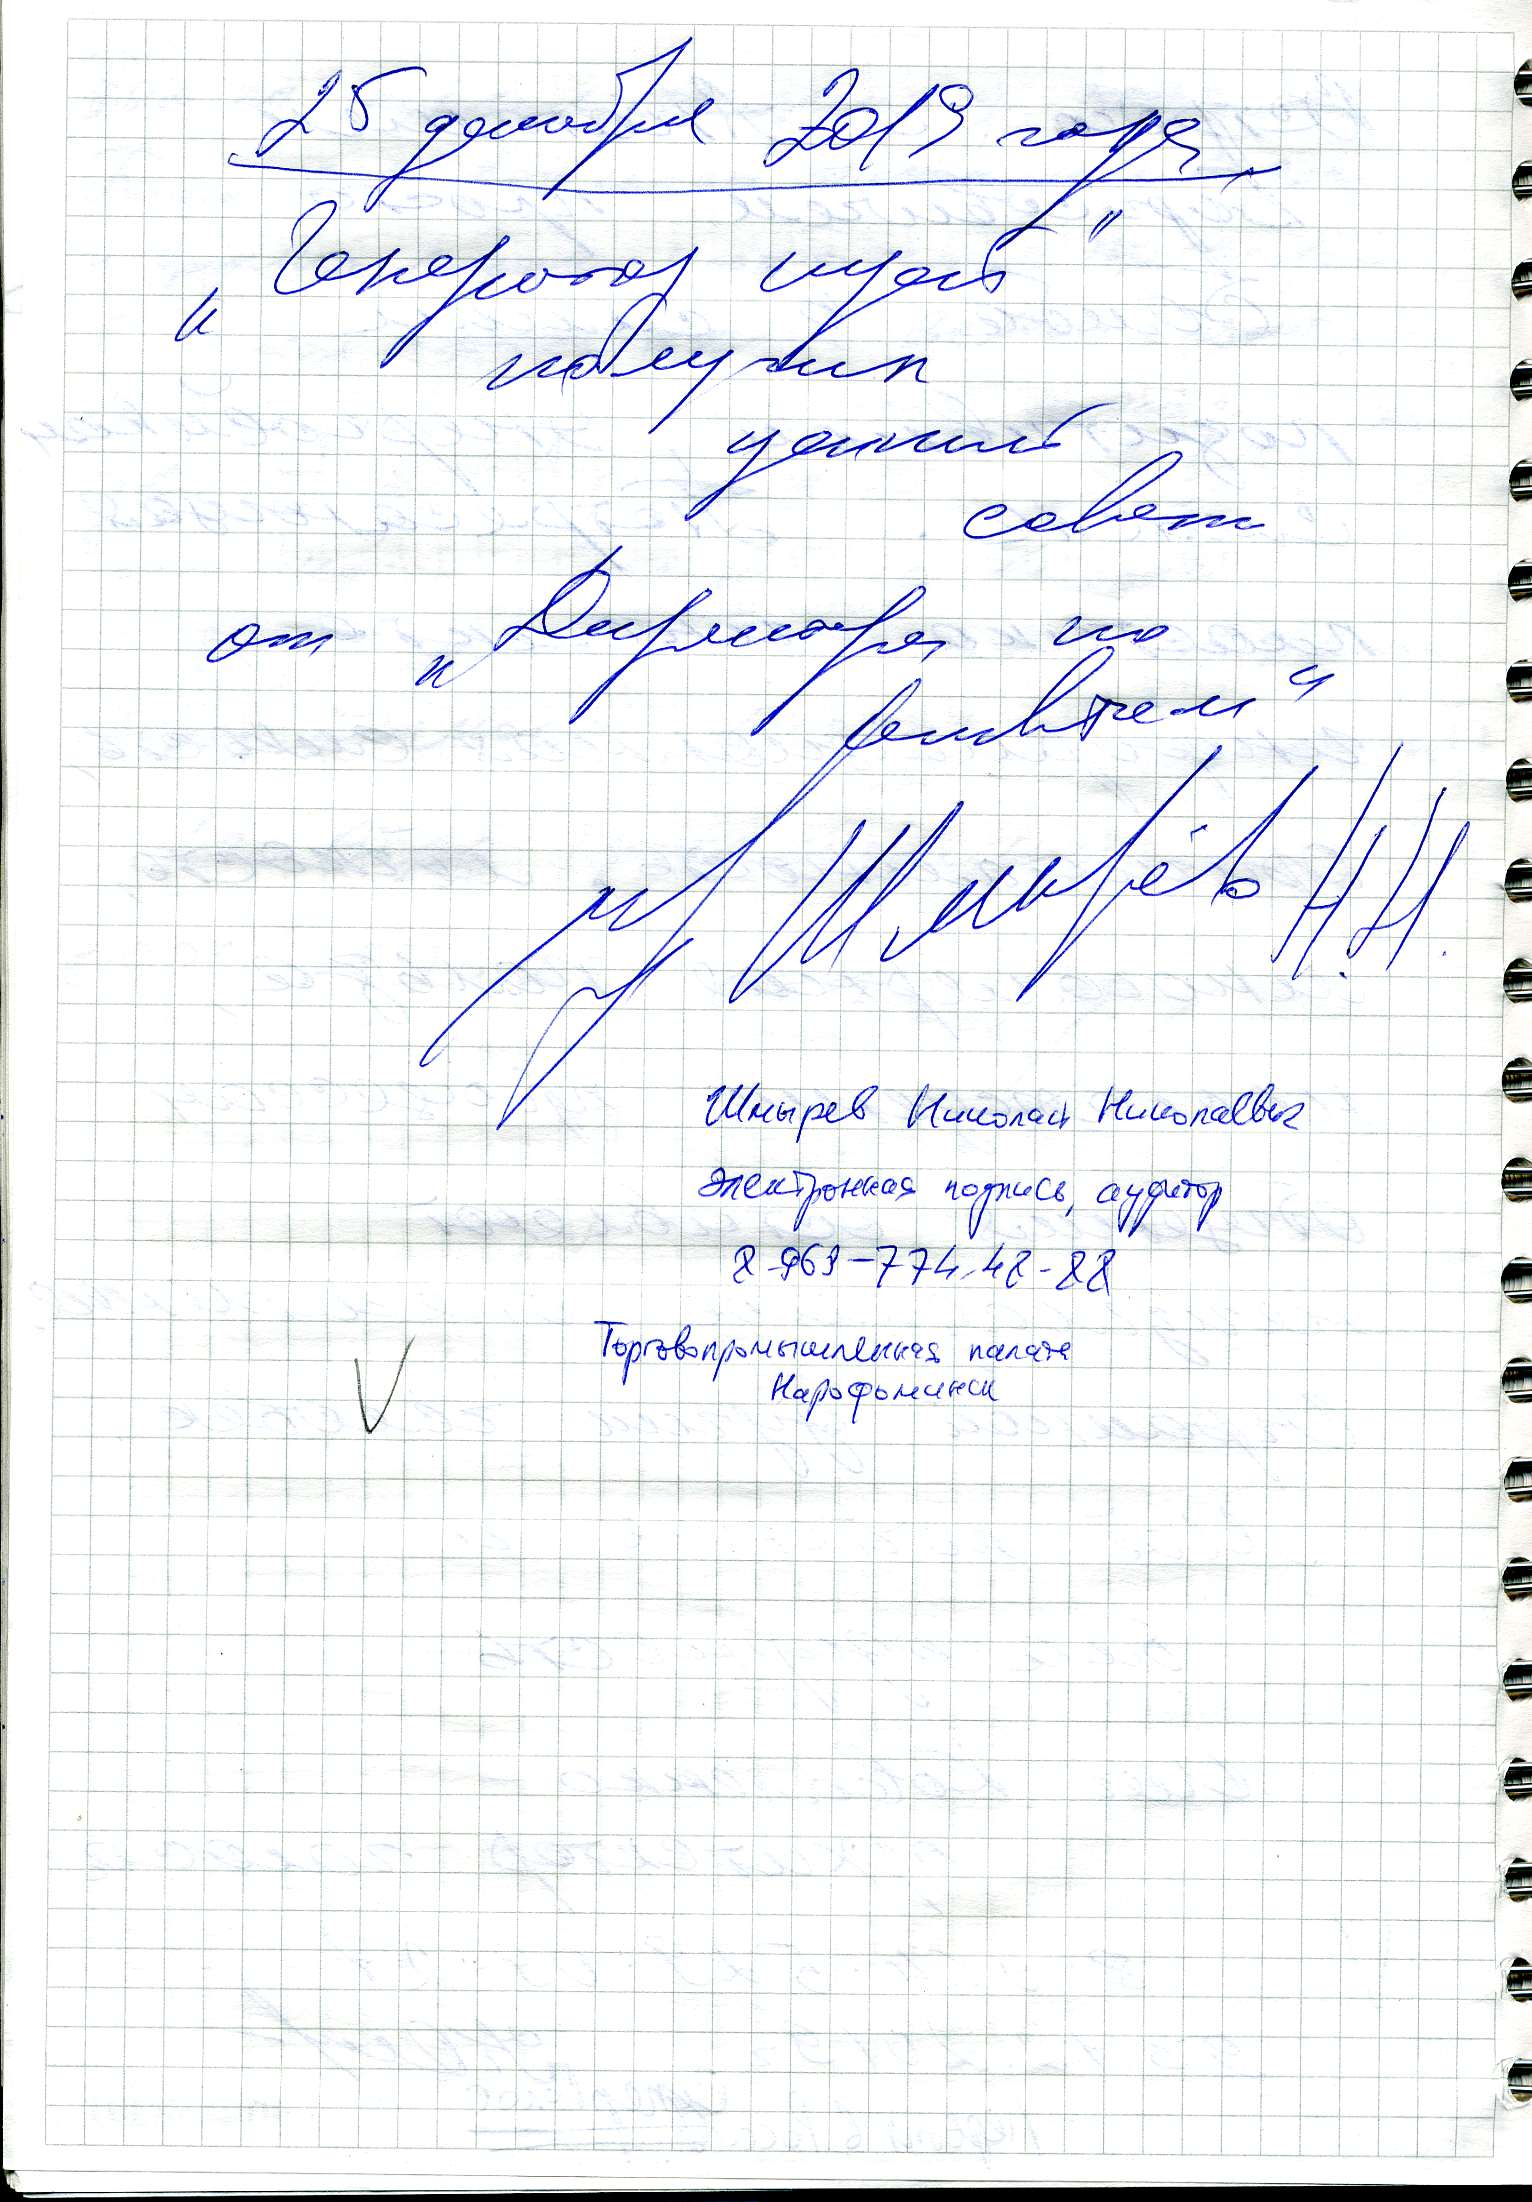 25 декабря 2019 года
„Генератор идей"
получил
ценный
совет
от „Директора по
ответам"
Шмырёв Н.Н.
Шмырев Николай Николаевич
Электронная подпись, аудитор
8-963-774-48-88
Торговопромышленная палата
Нарофоминск